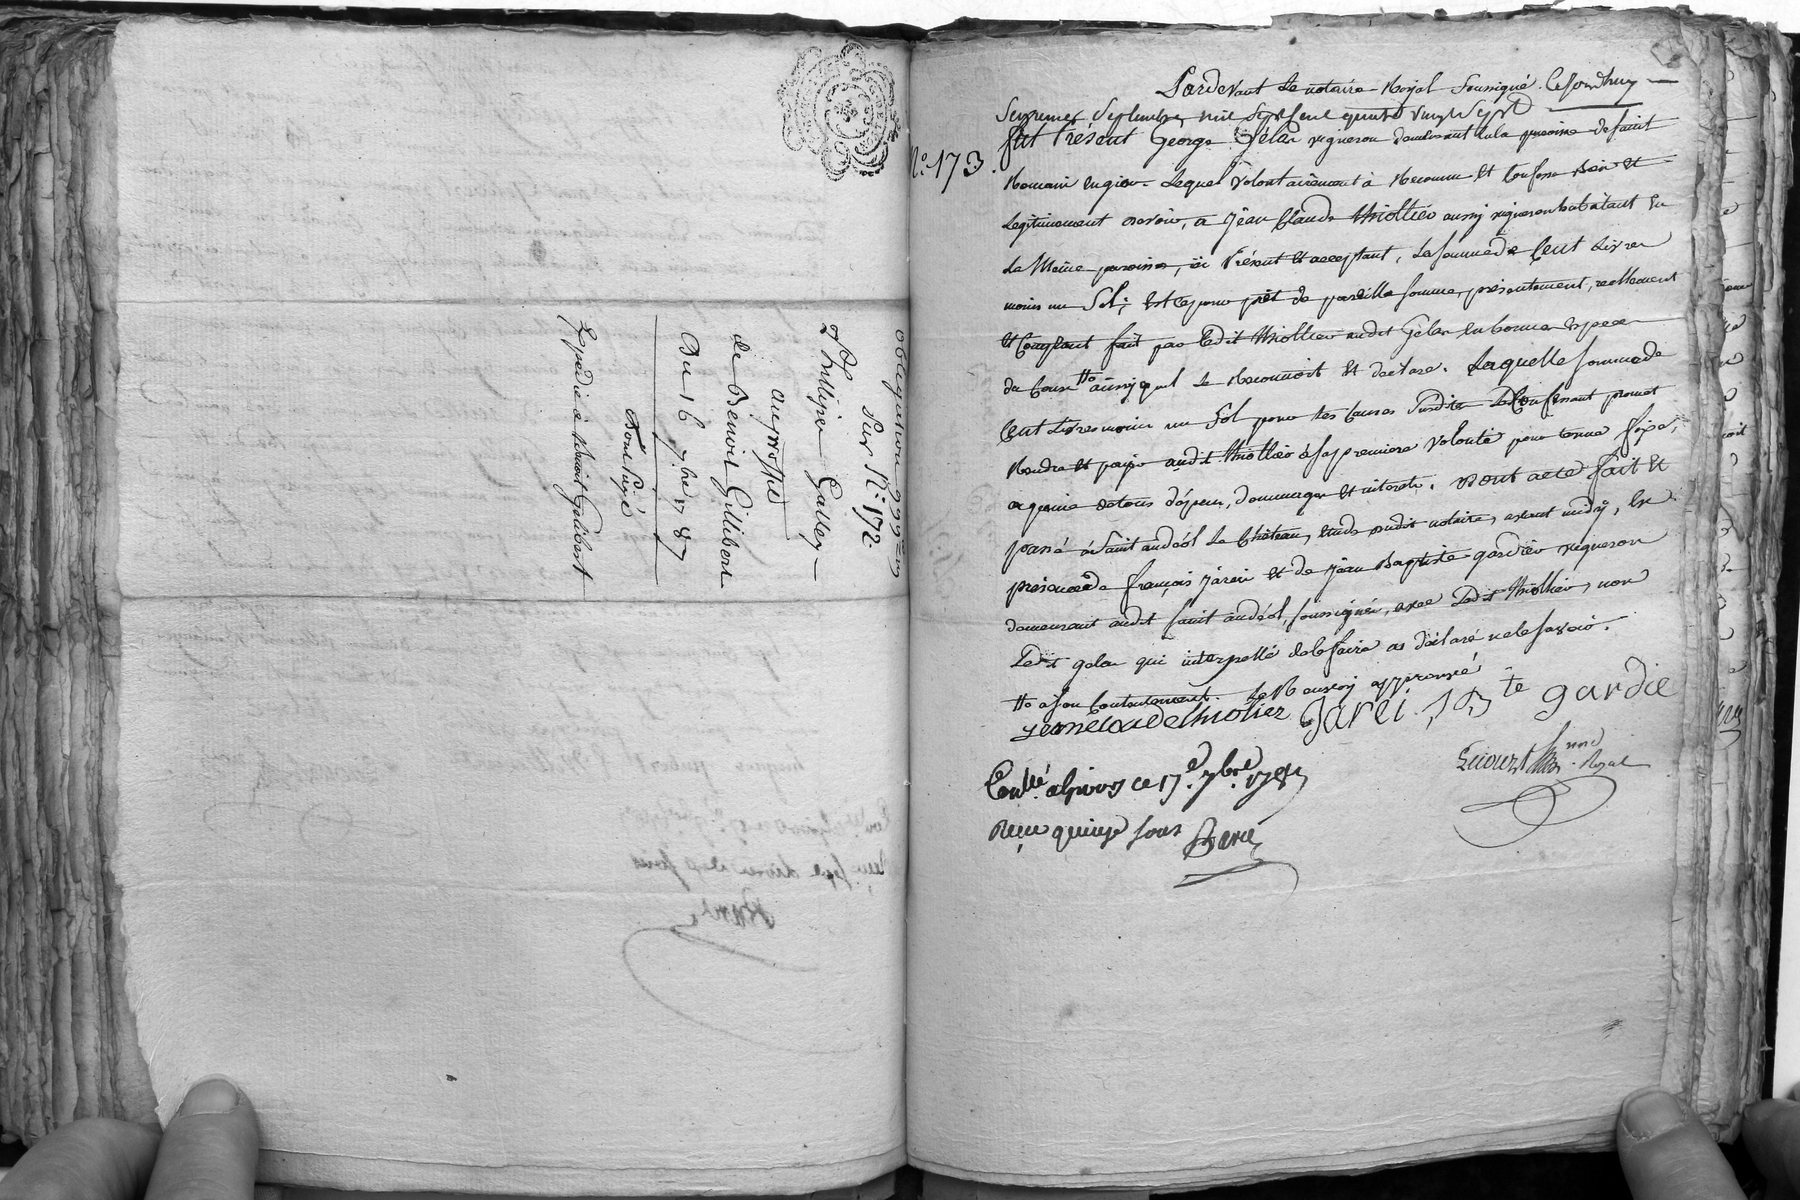 obligation 99#
Sur N.° 172.
Phillipe Galley
au proffit
de Benoit Gillibert
Du 16 7.bre 1787
Bont Payé
Expedié a benoit Gelibert
N.° 173.
Pardevant Le notaire Royal Soussigné.
Septembre mil Sept Cent quatre vingt Sept
fut Présent George Gélas vigneron demeurant en la paroisse de saint
Romain en gier. Lequel volontairement à Reconnu Et Confessé Bien Et
Légitimement devoir, a Jean Claude thiollier aussy vigneron habitant En
La Même paroisse, ici Présent Et acceptant, La somme de Cent Livres
moins un Sol; Est ce pour prêt de pareille somme, présentement, reellement
Et Comptant fait par Ledit thiollier audit Gelas En bonnes Especes
de Cours #° ainsy qu'il Le Reconnoit Et declare. Laquelle somme de
Cent Livres moins un Sol pour Les Causes Susdites LeConfessant promet
Rendre Et payer audit thiollier à sa premiere volonté pour terme fixe,
a peine de tous dépens, dommages Et interets. Dont acte fait Et
passé à Saint andéol Le Château, Etude dudit notaire, avant midy, En
présence de françois jarèi Et de jean Baptiste gardier vigneron
demeurant audit saint andéol, soussignés, avec Ledit thiollier, non
Ledit gelas qui interpellé de le faire as déclaré ne le savoir.
#° a son Contentement. Le Renvoy approuvé
jean claude thiolier Jarei. J B te gardie
Con.llé a Givors ce 17.e 7bre. 1787
Reçu quinze sous
n.re Royal